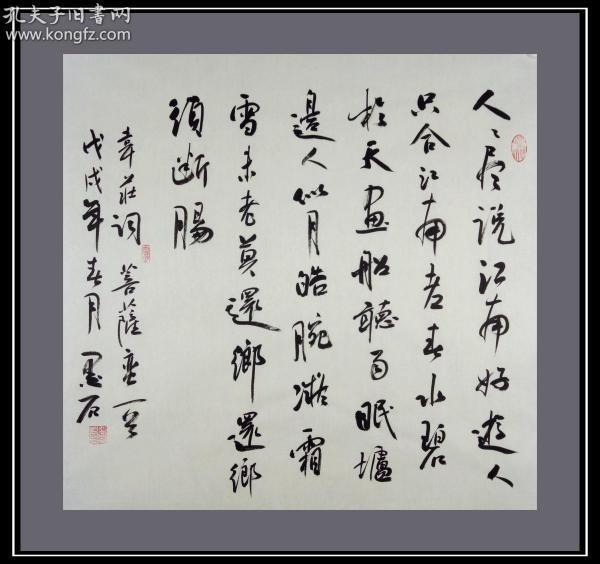 孔夫子旧书网
www.kongfz.com
人〻尽说江南好游人
只合江南老春水碧
於天画船聽雨眠壚
邊人似月皓腕凝霜
雪未老莫還鄉還鄉
須断腸
韋莊词 菩薩蛮一首
戊戌年春月 墨石